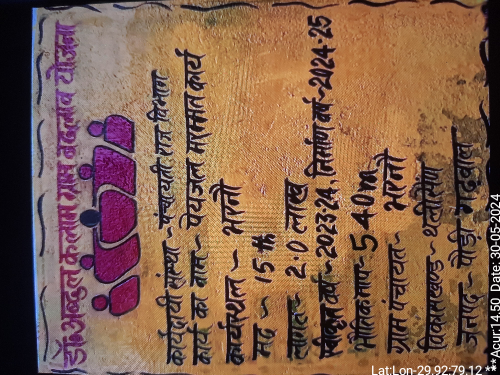 डॉ० अब्दुल कलाम ग्राम बदलाव योजना
कार्यदायी संस्था - पंचायती राज विभाग
कार्य का नाम - पेयजल मरम्मत कार्य
कार्यस्थल - भरनौ
मद - 15 th
लागत - 2.0 लाख
स्वीकृत वर्ष - 2023-24, निर्माण वर्ष - 2024-25
भौतिक माप - 540m
ग्राम पंचायत - भरनौ
विकासखण्ड - थलीसैण
जनपद - पौड़ी गढ़वाल
Lat:Lon-29.92:79.12 **Acur:14.50 Date: 30-05-2024